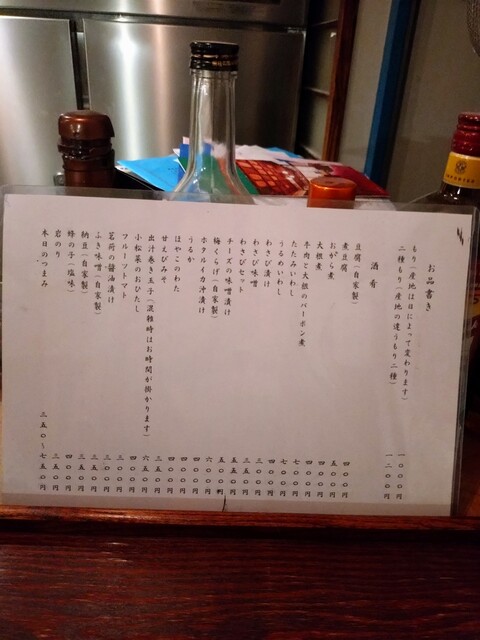 お品書き
もり(産地は日によって変わります) 一〇〇〇円
二種もり(産地の違うもり二種) 一二〇〇円
酒肴
豆腐(自家製) 四〇〇円
煮豆腐 五〇〇円
おがら煮 四〇〇円
大根煮 四〇〇円
牛肉と大根のバーボン煮 七〇〇円
たたみいわし 七〇〇円
うるめいわし 四〇〇円
わさび漬け 三〇〇円
わさび味噌 五五〇円
わさびセット 五五〇円
チーズの味噌漬け 五〇〇円
梅くらげ(自家製) 六〇〇円
ホタルイカ沖漬け 四〇〇円
うるか 四〇〇円
ほやこのわた 四〇〇円
甘えびみそ 三五〇円
出汁巻き玉子(混雑時はお時間が掛かります) 六五〇円
小松菜のおひたし 四〇〇円
フルーツトマト 三五〇円
茗荷の醤油漬け 三五〇円
ふき味噌(自家製) 三五〇円
納豆(自家製) 三五〇円
蜂の子(塩味) 四〇〇円
岩のり 三五〇円
本日のつまみ 三五〇〜七五〇円